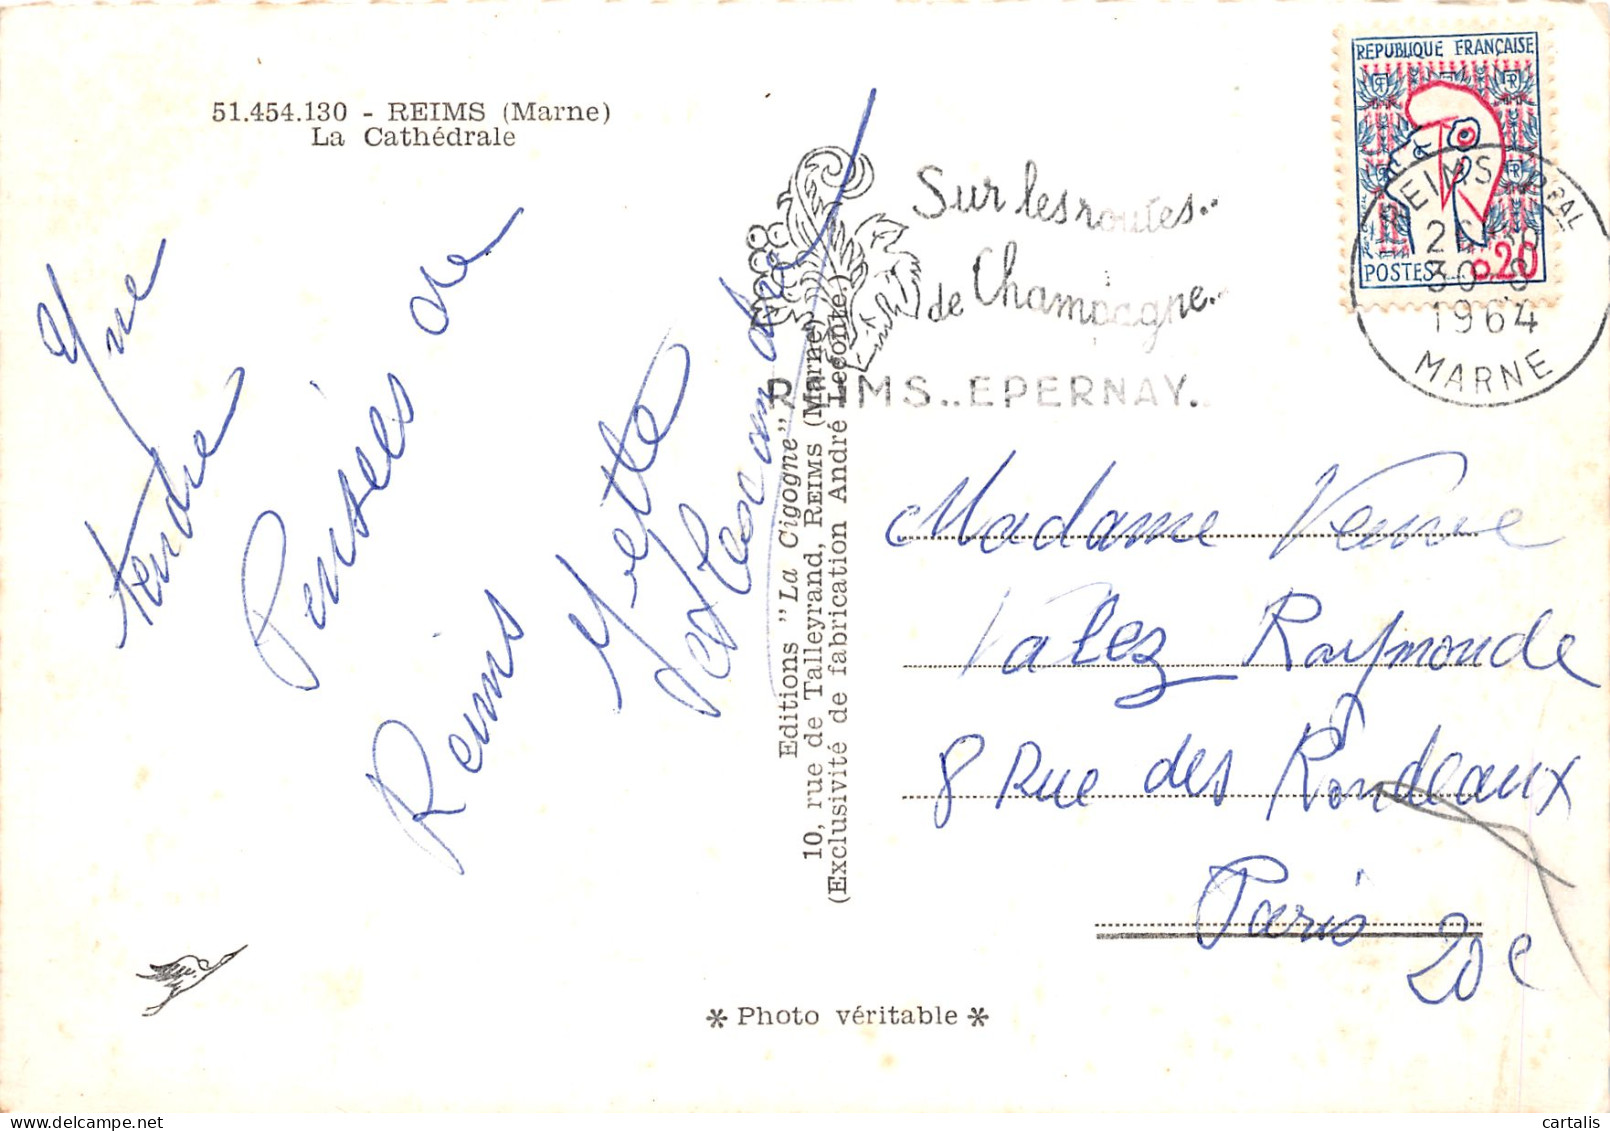 51.454.130 - REIMS (Marne)
La Cathédrale
Une
tendre
Pensées de
Reims
Yvette
Editions "La Cigogne"
10, rue de Talleyrand, REIMS (Marne)
(Exclusivité de fabrication André Leconte)
Sur les routes..
de Champagne..
REIMS..EPERNAY..
REPUBLIQUE FRANÇAISE
POSTES 0,20
REIMS
1964
MARNE
Madame Veuve
Valez Raymonde
8 Rue des Rondeaux
Paris
20e
* Photo véritable *
cartalis